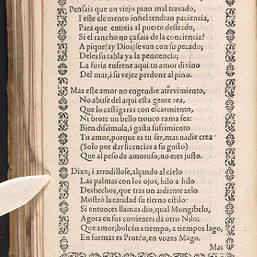 Pensais que un viejo pino mal travado,
I este elemento infiel tendran paciencia,
Para que enteis al puerto desseado,
Si el rancho no çafais de la conciencia?
A pique (ay Dios) se van con su pecado;
Deles su tabla ya la penitencia;
La furia enfrene aqui tu amor divino
Del mar, i su vejez perdone al pino.
Mas este amor no engendre atrevimiento,
No abuse del aqui ella gente rea,
Que lo castigaras con escarmiento,
Ni brote un bello tronco rama fea:
Bien disimula, i gasta sufrimiento
Tu amor, porque es tu ser, mas nadie crea
(Solo por dar licencias a su gusto)
Que al peso de amoroso, no eres justo.
Dixo, i arrodillose, alçando al cielo
Las palmas con los ojos, hilo a hilo
Deshechos, que tras un ardiente zelo
Mostrò la caridad su tierno estilo:
Si entonces llamas dio, qual Mongibelo,
Agora en sus corrientes da otro Nilo;
Que amor, bolcan a tiempo, a tiempos lago,
En formas es Proteo, en vozes Mago.
Mas